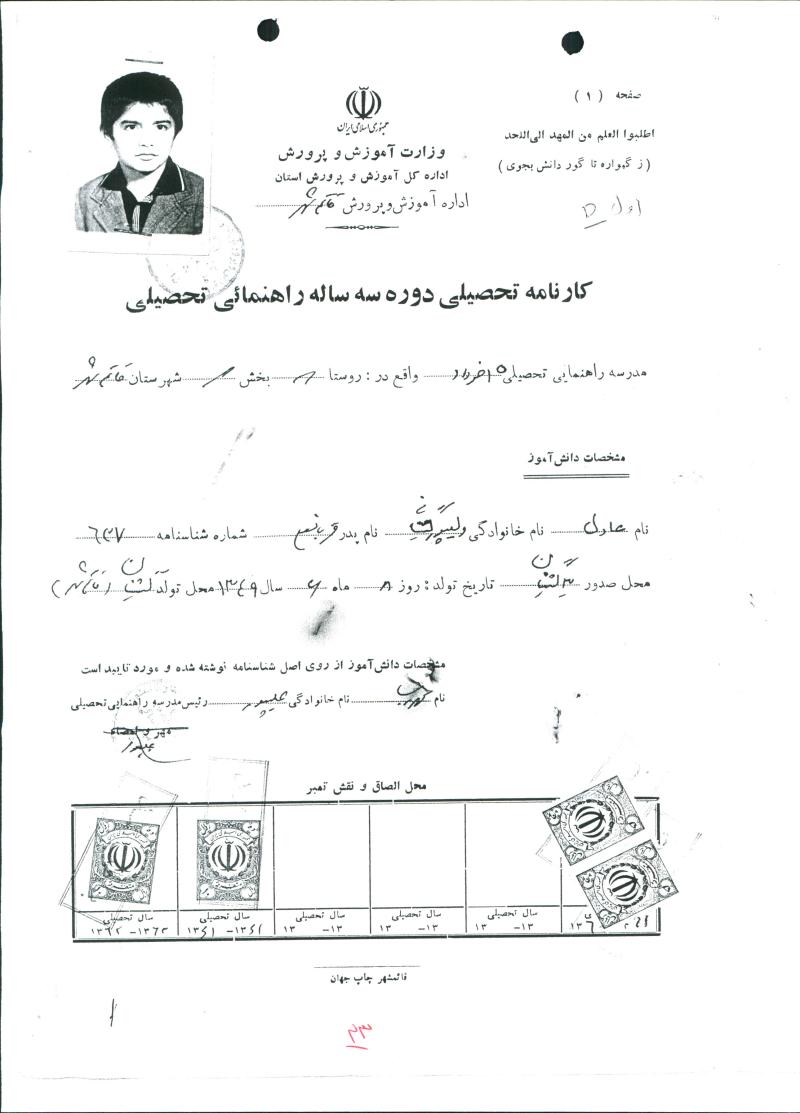 صفحه (۱)
جمهوری اسلامی ایران
وزارت آموزش و پرورش
اداره کل آموزش و پرورش استان
اداره آموزش و پرورش قائم شهر
اطلبوا العلم من المهد الی اللحد
(ز گهواره تا گور دانش بجوی)
کارنامه تحصیلی دوره سه ساله راهنمائی تحصیلی
مدرسه راهنمایی تحصیلی ۱۵ خرداد واقع در: روستا بخش شهرستان قائم شهر
مشخصات دانش‌آموز
نام عادل نام خانوادگی نام پدر شماره شناسنامه ۶۳۷
محل صدور تاریخ تولد: روز ۸ ماه ۶ سال ۱۳۴۹ محل تولد (قائم شهر)
مشخصات دانش‌آموز از روی اصل شناسنامه نوشته شده و مورد تایید است
نام نام خانوادگی رئیس مدرسه راهنمایی تحصیلی
مهر و امضاء
محل الصاق و نقش تمبر
سال تحصیلی سال تحصیلی سال تحصیلی سال تحصیلی سال تحصیلی
۱۳ -۱۳ ۱۳ -۱۳ ۱۳ -۱۳
قائمشهر چاپ جهان
۲۳